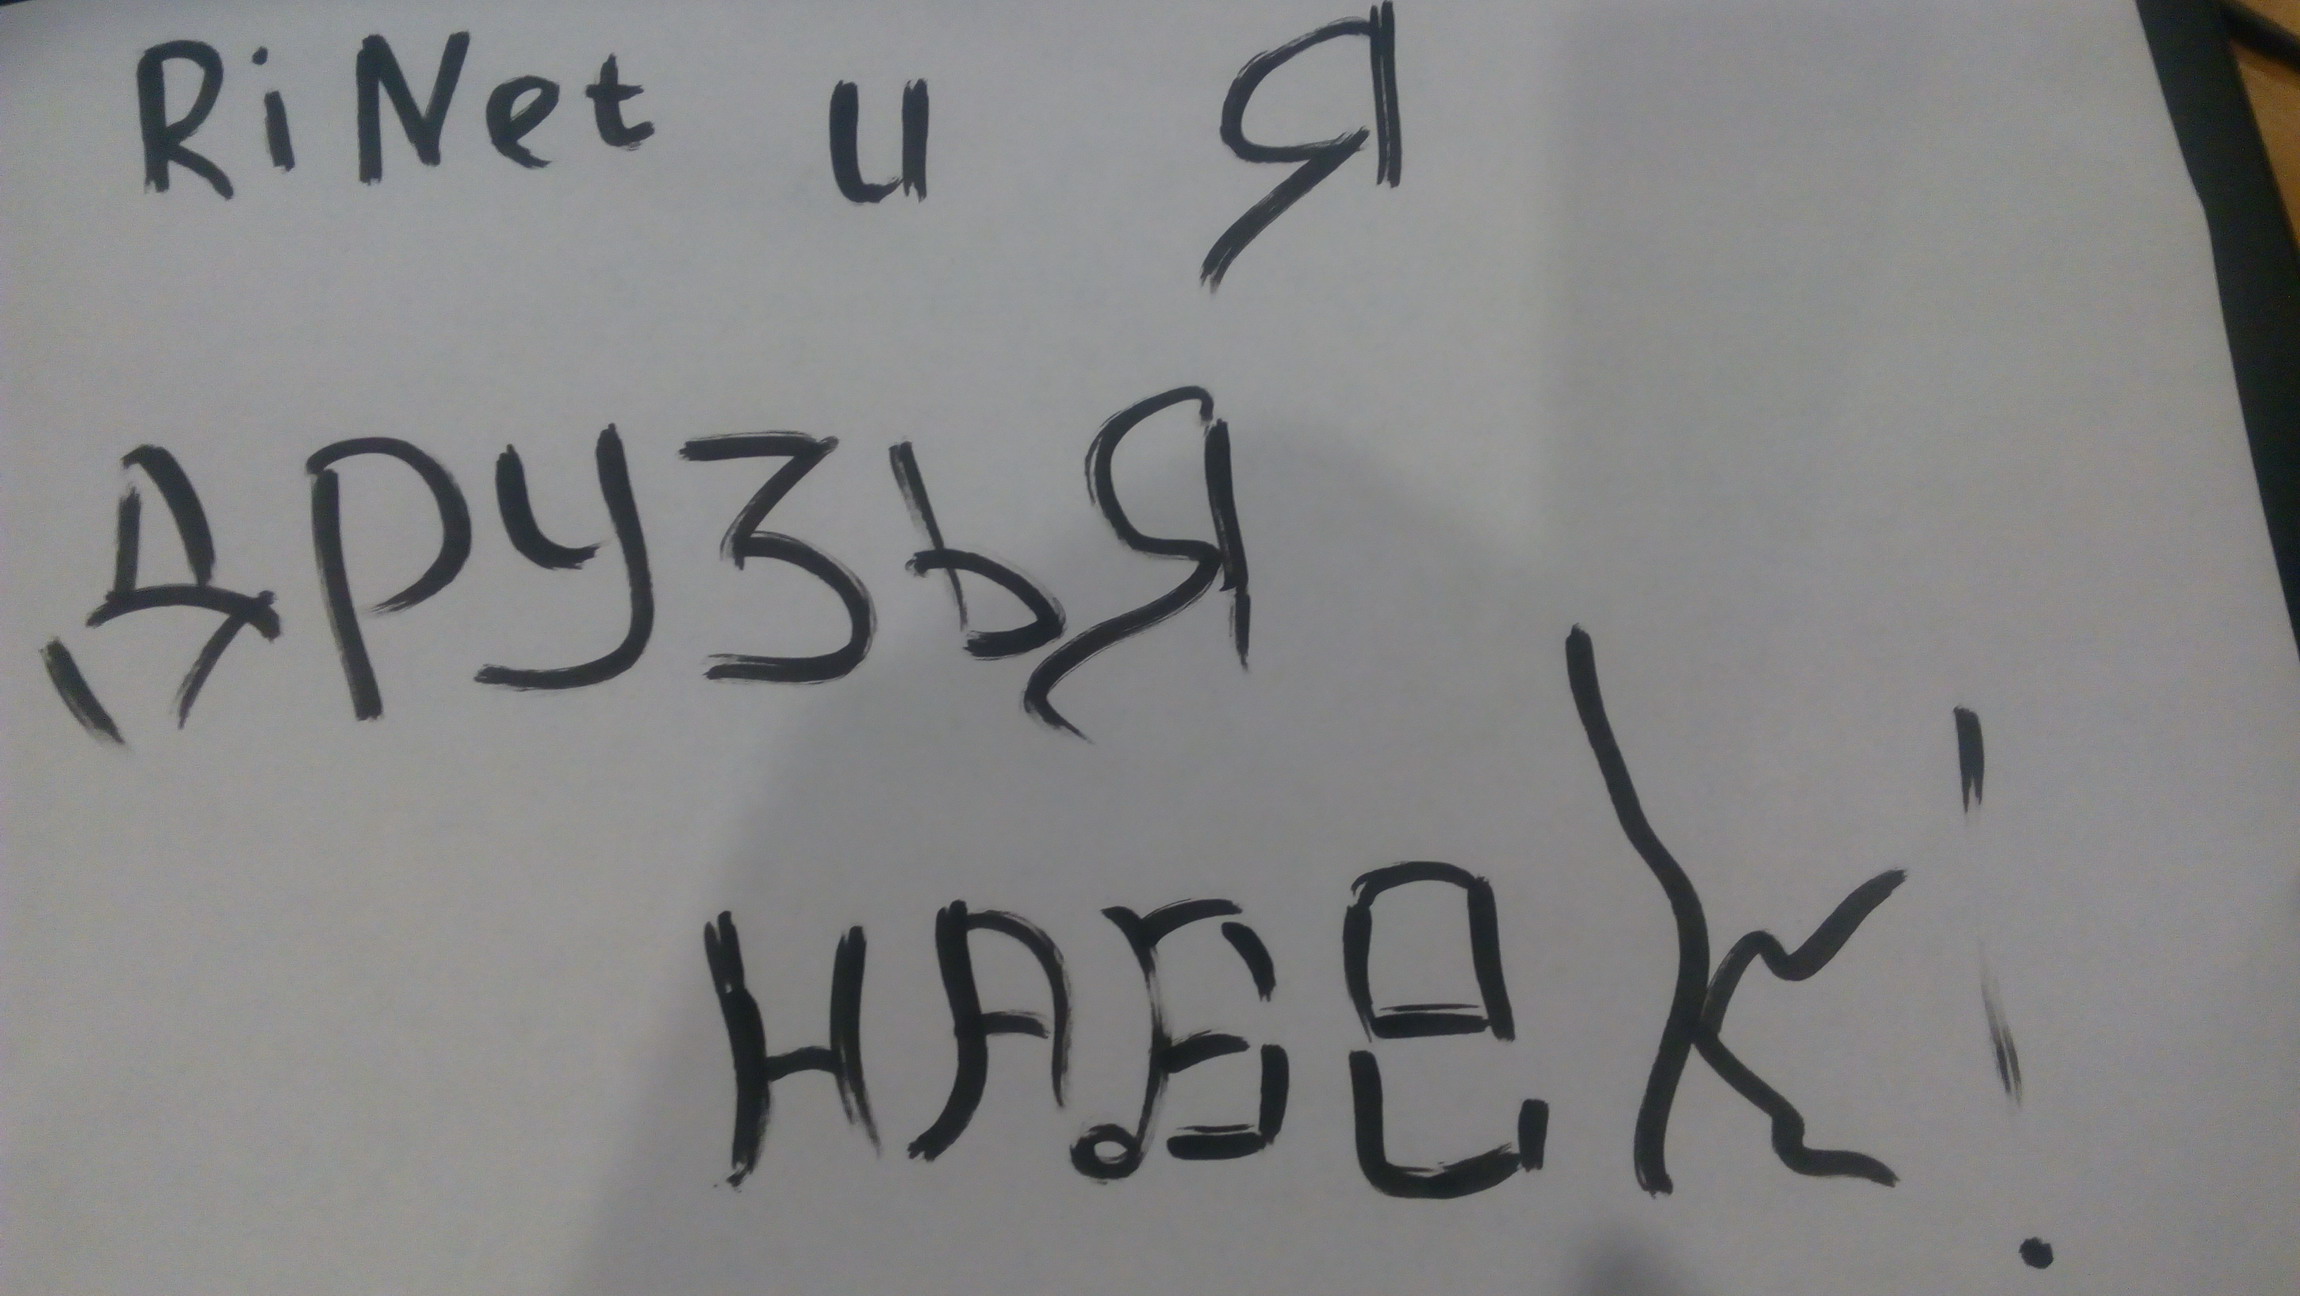 RiNet и Я
ДРУЗЬЯ
НАВеК!